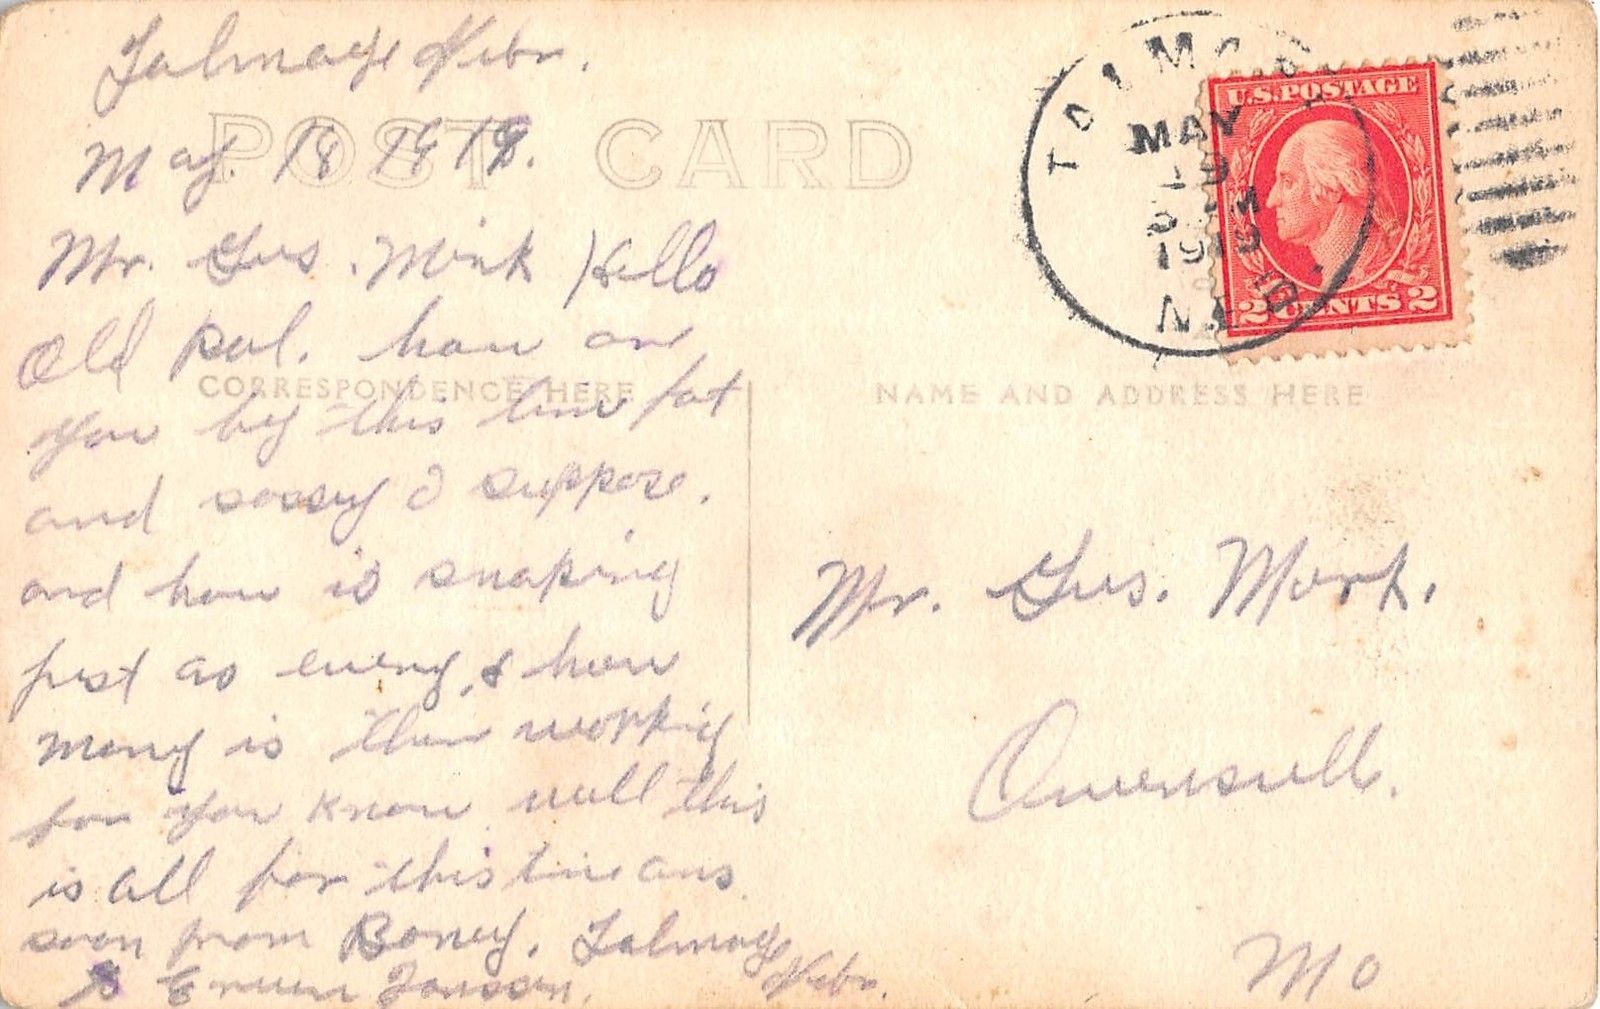 Talmage Nebr.
May. 18 1919.
POST CARD
Mr. Gus. Mink Hello
Old pal. how are
CORRESPONDENCE HERE
you by this time fat
and sassy I suppose.
and how is snaping
just as eveny, & how
meny is then working
for you know will this
is all for this time ans
soon from Boney. Talmage
Nebr.
Janssen.
TALMAGE
MAY
19
1919
U.S. POSTAGE
2 CENTS 2
NAME AND ADDRESS HERE
Mr. Gus. Mork.
Owensvill.
Mo